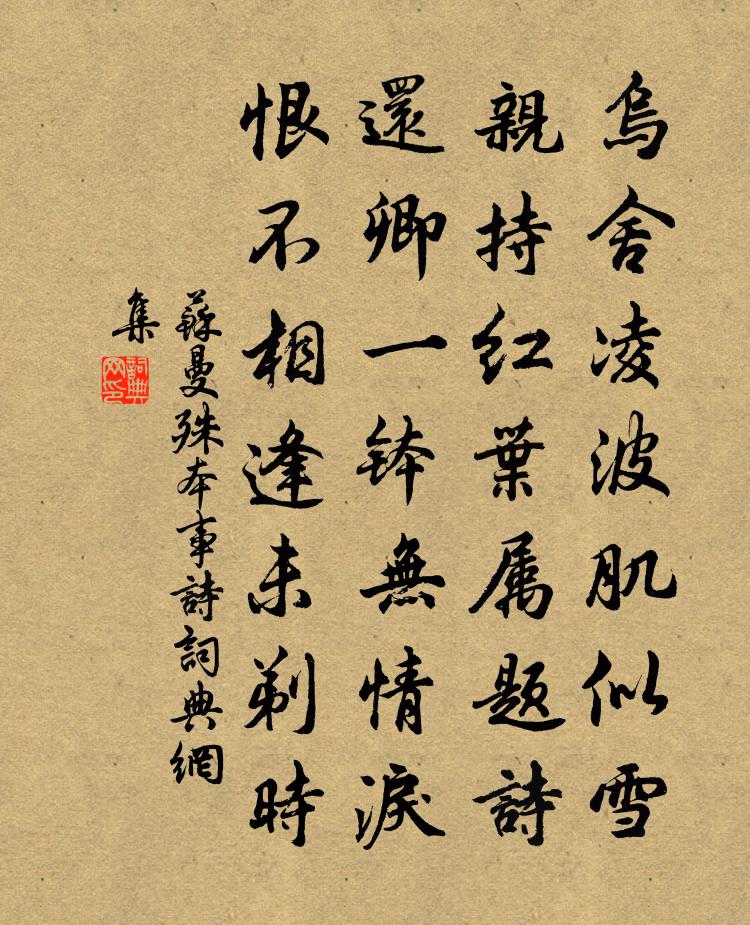 烏舍凌波肌似雪
親持紅葉属題詩
還卿一缽無情淚
恨不相逢未剃時
蘇曼殊本事詩詞典網
集
詞典
网印